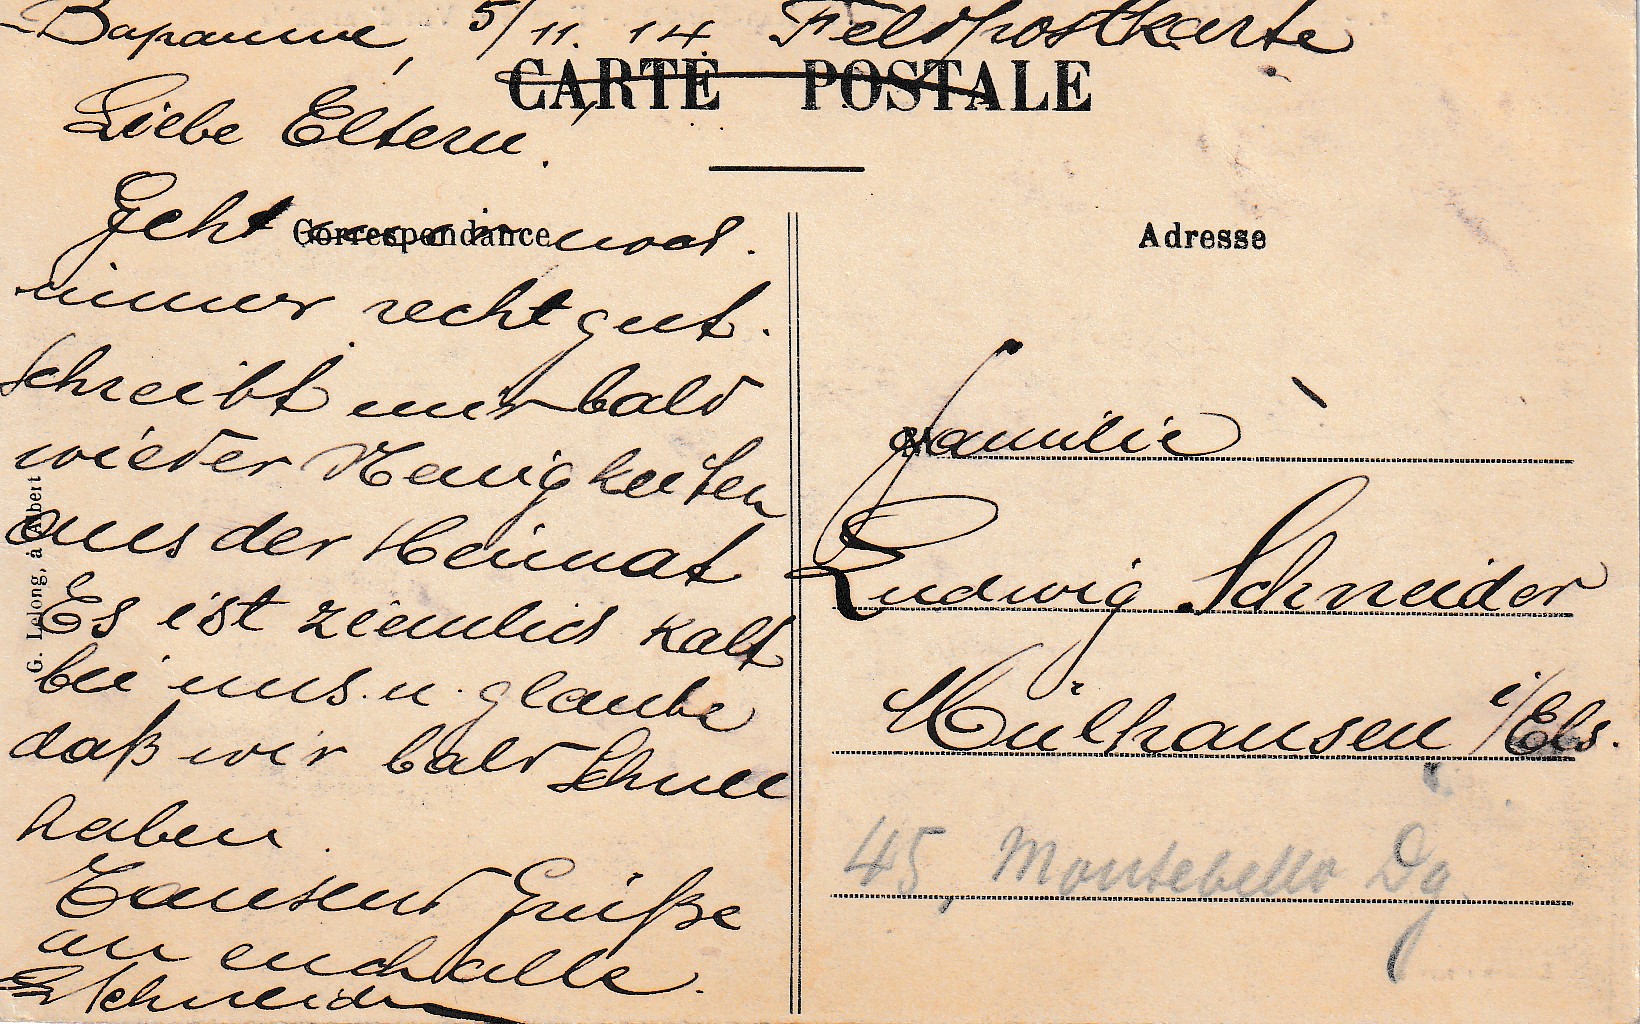 Bapaume, 5/11.14 Feldpostkarte
CARTE POSTALE
Liebe Eltern!
Geht
Correspondance
noch
immer recht gut.
Schreibt mir bald
wieder Neuigkeiten
aus der Heimat
Es ist ziemlich kalt
bei uns u. glaube
daß wir bald Schnee
haben.
Tausend Grüße
an euch alle.
Schneider
G. Lelong, à Albert
Adresse
Familie
Ludwig Schneider
Mülhausen i/Els.
45, Montebello Dg.